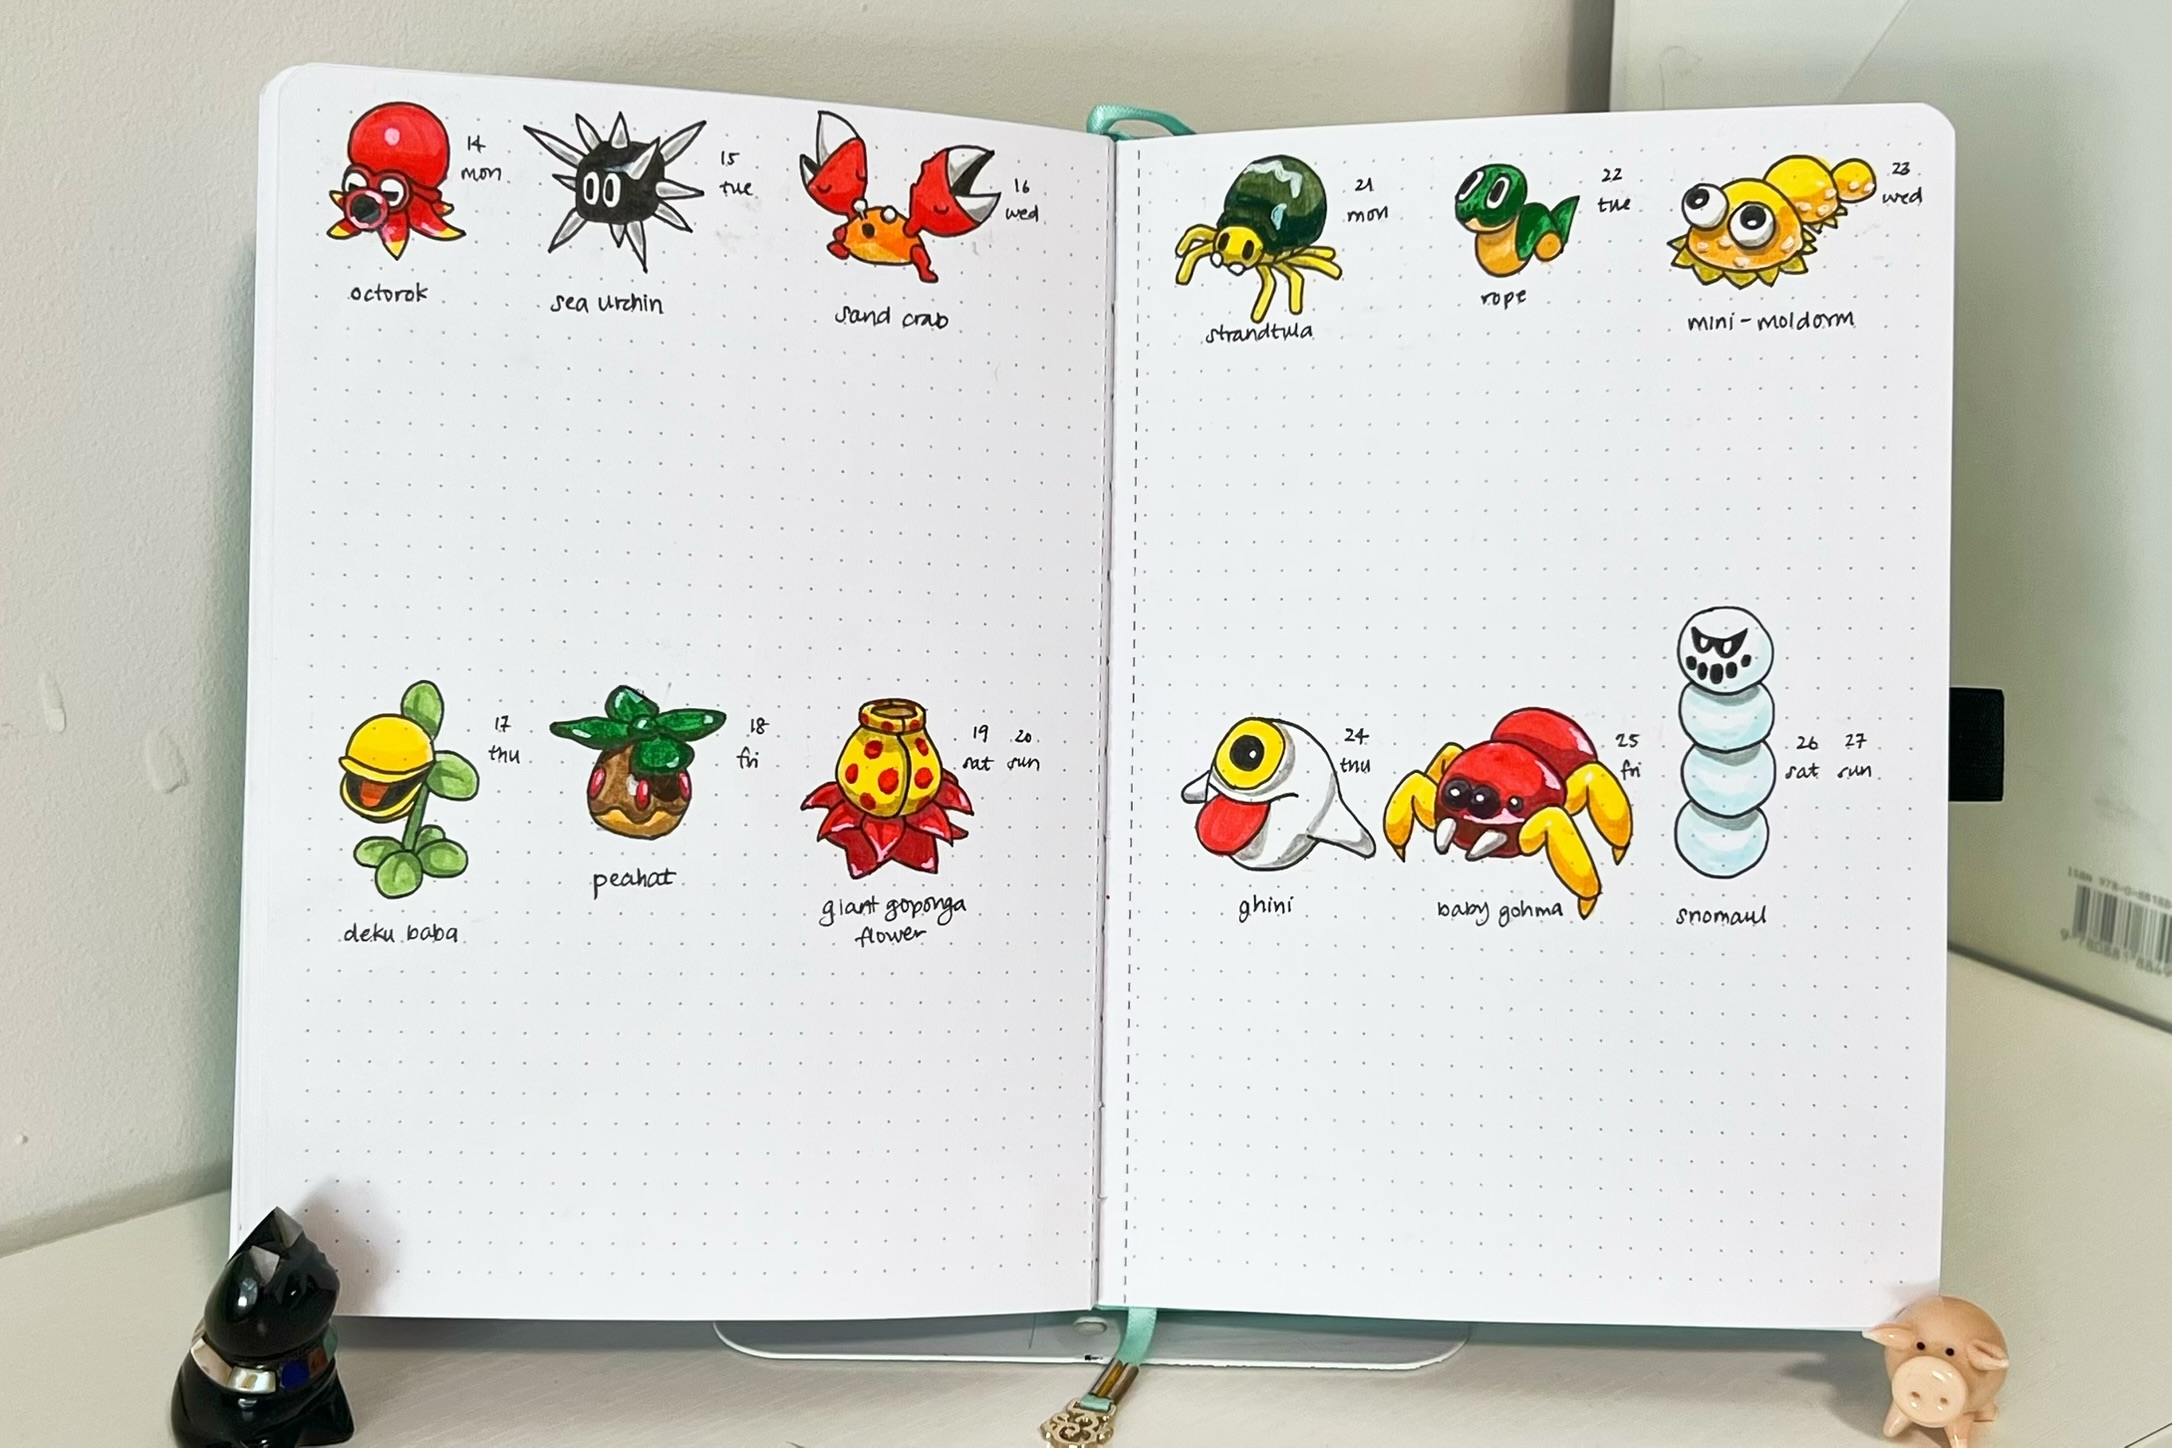 14
mon
octorok
15
tue
sea urchin
16
wed
sand crab
17
thu
deku baba
18
fri
peahat
19 20
sat sun
giant goponga
flower
21
mon
strandtula
22
tue
rope
23
wed
mini-moldorm
24
thu
ghini
25
fri
baby gohma
26 27
sat sun
snomaul